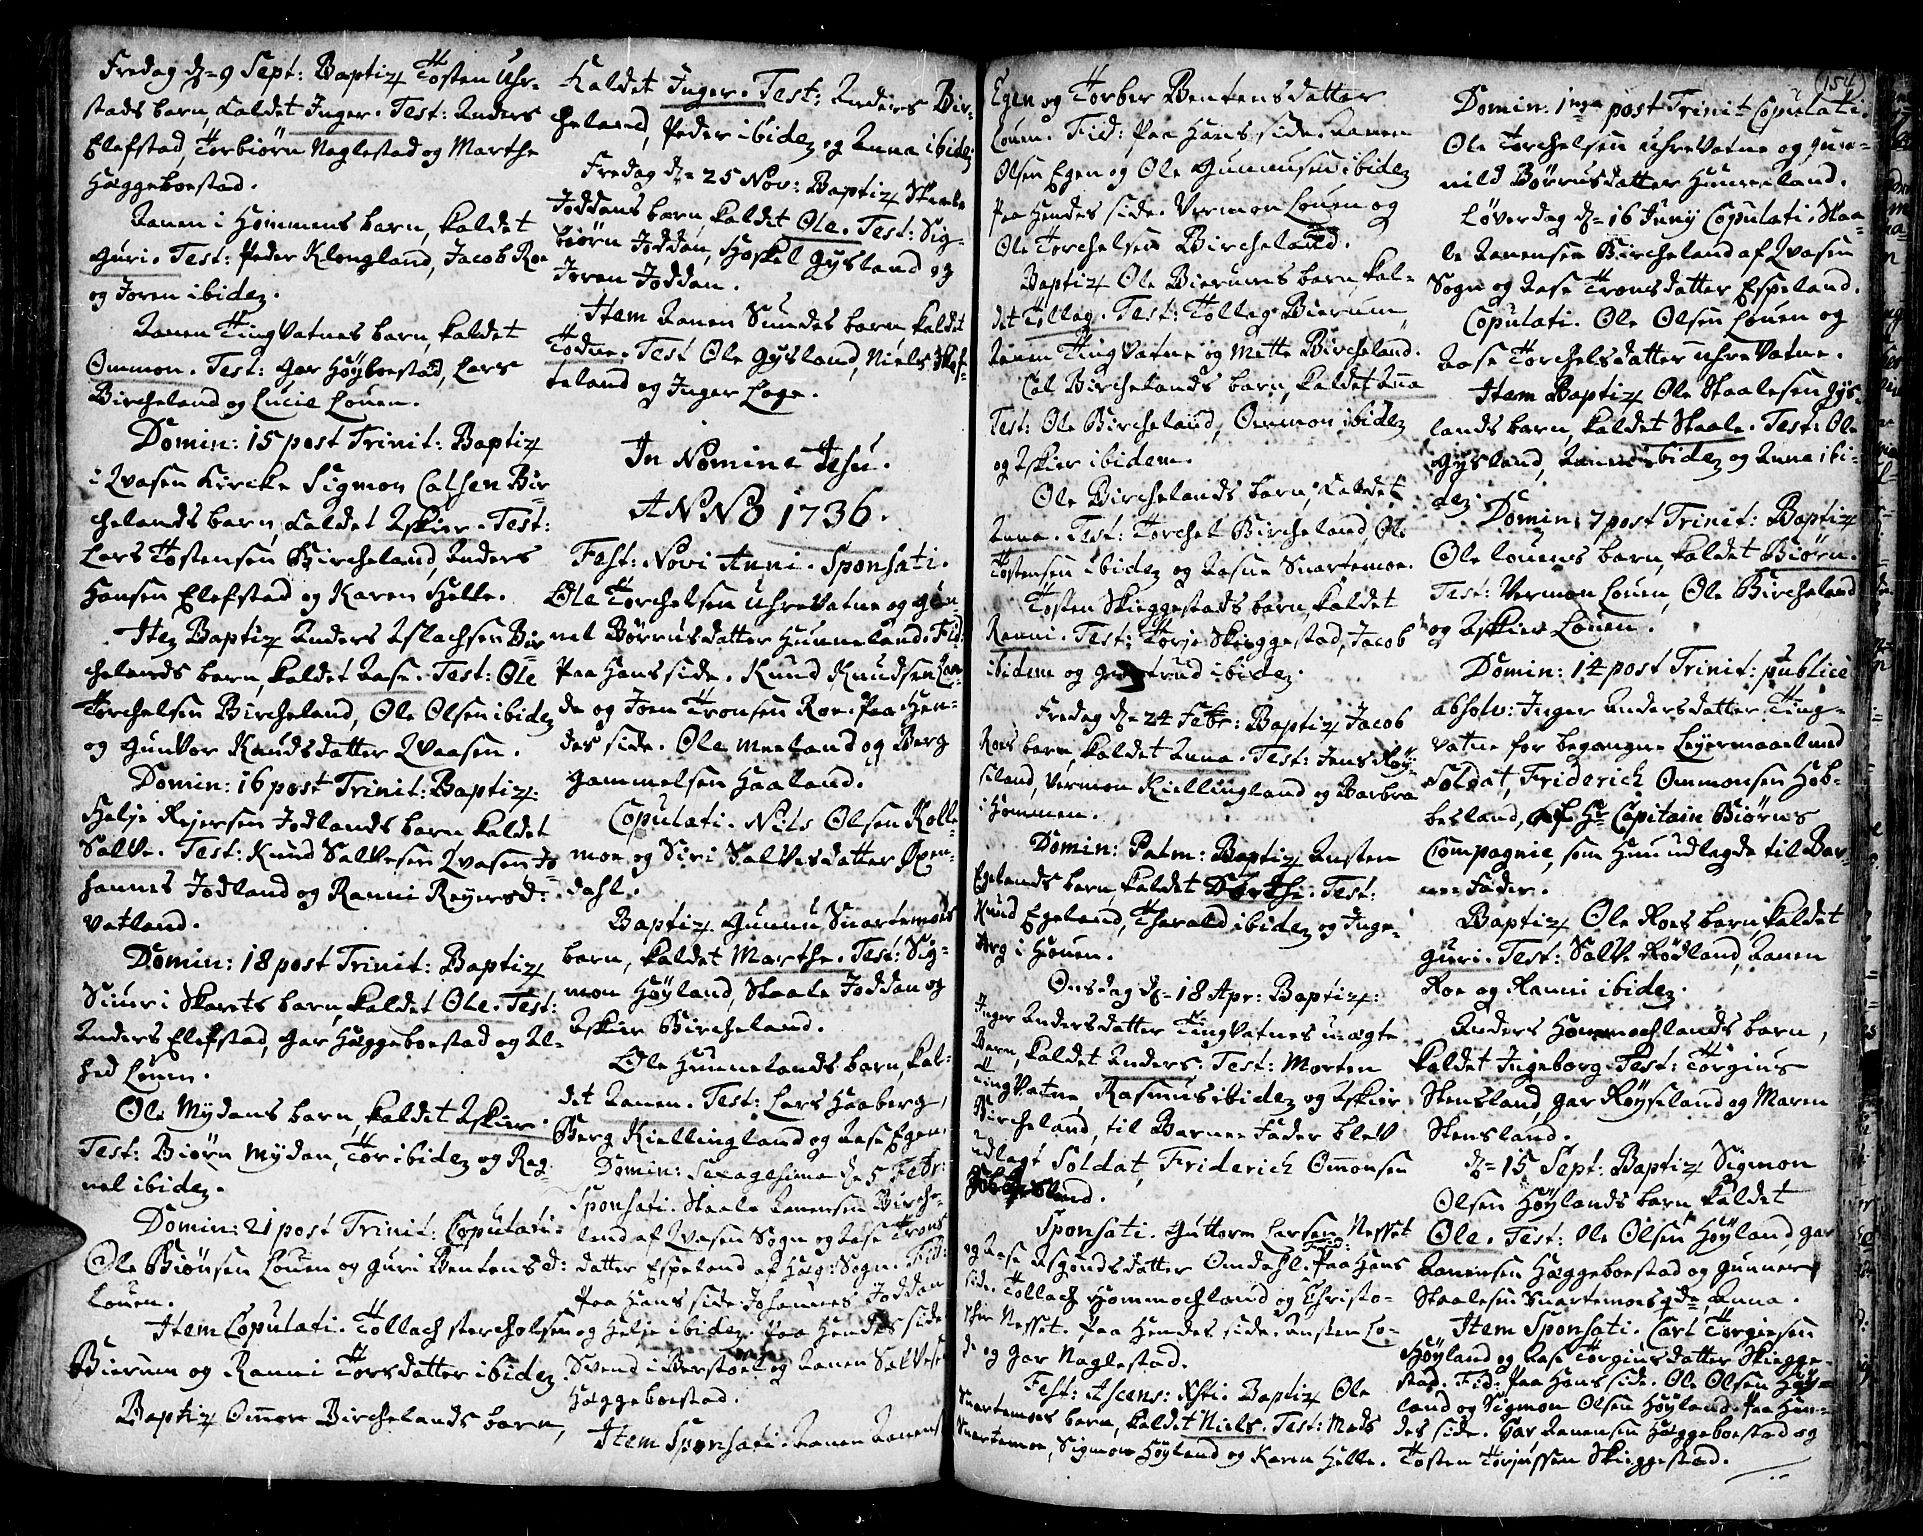 Fredag d= 9 Sept: Baptiz Tosten Uhr-
stads barn, kaldet Inger. Test: Anders
Elefstad, Torbiørn Naglestad og Marthe
Haggeboestad.
Aanen i Hommens barn, kaldet
Guri. Test: Peder Klongland, Jacob Roe
og Joren ibidem.
Aanen TingVatnes barn, kaldet
Ommon. Test: Gar Høyboestad, Lars
Bircheland og Lucie Louen.
Domin: 15 post Trinit: Baptiz
i Qvasen Kircke Sigmon Calsen Bir-
chelands barn, kaldet Askier. Test:
Lars Tostensen Bircheland, Anders
Hansen Elefstad og Karen Helle.
Item Baptiz Anders Aslachsen Bir-
chelands barn, kaldet Aase. Test: Ole
Torchelsen Bircheland, Ole Olsen ibidem
og Gunvor Knudsdatter Qvaasen.
Domin: 16 post Trinit: Baptiz.
Helje Rejersen Jodlands barn kaldet
Salve. Test: Knud Salvesen Qvasen, Jo-
hannes Jodland og Ranni Reyersd:
Vatland.
Domin: 18 post Trinit: Baptiz
Siuri Skarets barn, kaldet Ole. Test:
Anders Elefstad, Gar Haggeboestad og Al-
hed Louen.
Ole Mydans barn, kaldet Askier.
Test: Biørn Mydan, Tor ibidem og Rag-
nel ibidem.
Domin: 21 post Trinit: Copulati.
Ole Biønsen Louen og Guri Bentens d:
Louen.
Item Copulati. Tollach Storcholsen
Bierum og Ranni Torsdatter ibidem.
Baptiz Omon Birchelands barn,
kaldet Inger. Test: Anders Bir-
cheland, Peder ibidem og Anna ibidem.
Fredag d= 25 Nov: Baptiz Staale
Joddans barn, kaldet Ole. Test: Sig-
biørn Joddan, Hoskel Gysland og
Joren Joddan.
Item Aanen Sundes barn kaldet
Todne. Test Ole Gysland, Niels
teland og Inger Loge.
In Nomine Jesu.
ANNO 1736.
Fest: Novi Anni. Sponsati.
Ole Torchelsen UhreVatne og Gun-
nel Børrusdatter Hunneland. Fid:
Paa Hans side. Knud Knudsen
de og Joen Tronsen Roe. Paa Hen-
des side. Ole Meeland og Berg
Gammelsen Haaland.
Copulati. Nils Olsen Rolle-
moe og Siri Salvesdatter Øxen-
dahl.
Baptiz Gunnu Snartemoes
barn, kaldet Marthe. Test: Sig-
mon Høyland, Staale Joddan og
Askier Bircheland.
Ole Hunnelands barn, kal-
det Aanen. Test: Lars Haaberg,
Berg Kiellingland og Aase Egen.
Domin: Sexagesima d= 5 Febr:
Sponsati. Staale Aanensen Birche-
land af Qvasen Sogn og Aase Trons
datter Espeland af Hæg: Sogn. Fid:
Paa Hans side. Johannes Joddan
og Helje ibidem. Paa Hendes side
Svend i Berstoel og Aanen Salvese
Haggeboestad.
Item Sponsati. Aanen Aanens
Egen og Torber Bentensdatter
Louen. Fid: Paa Hans side. Aanen
Olsen Egen og Ole Gunnusen ibidem
Paa Hendes side. Vermon Louen og
Ole Torchelsen Bircheland.
Baptiz Ole Bierums barn, kal-
det Tollag. Test: Tollag Bierum,
Aanen TingVatne og Mette Bircheland.
Cal Birchelands barn, kaldet Anna
Test: Ole Bircheland, Ommon ibidem
og Askier ibidem.
Ole Birchelands barn, kaldet
Anna. Test: Torchel Bircheland, Ole
Tostensen ibidem og Aasne Snartemoe.
Tosten Skieggestads barn, kaldet
Ranni. Test: Torje Skieggestad, Jacob
ibidem og Giertrud ibidem.
Fredag d= 24 Febr: Baptiz Jacob
Roes barn, kaldet Anna. Test: Jens Røy-
seland, Vermon Kiellingland og Barbra
i Hommen.
Domin: Palm: Baptiz Austen
Egelands barn, kaldet Dorthi. Test:
Knud Egeland, Therald ibidem og Inge-
borg i Houen.
Onsdag d= 18 Apr: Baptiz:
Inger Andersdatter TingVatnes uægte
Barn, kaldet Anders. Test: Morten
TingVatne, Rasmus ibidem og Askier
Bircheland, til Barne Fader blev
udlagt Soldat, Friderich Omonsen
Hobbesland.
Sponsati. Guttorm Larsen Nesset
og Aase Asgondsdatter Omdahl. Fid: Paa Hans
side. Tollach Hommochland og Christo-
pher Nesset. Paa Hendes side. Austen Lo-
de og Gar Naglestad.
Fest: Ascens: Xsti. Baptiz Ole
Snartemoes barn, kaldet Niels. Test: Mads
Snartemoe, Sigmon Høyland og Karen Helle.
154
Domin: 1ma post Trinit Copulati.
Ole Torchelsen UhreVatne og Gun-
nild Børrusdatter Hunneland.
Løverdag d= 16 Juny Copulati. Staa-
le Aanensen Bircheland af Qvasen
Sogn og Aase Tronsdatter Espeland.
Copulati. Ole Olsen Louen og
Aase Torchelsdatter UhreVatne.
Item Baptiz Ole Staalesen Gys-
lands barn, kaldet Staale. Test: Ole
Gysland, Aanen ibidem og Anna ibi-
dem.
Domin: 7 post Trinit: Baptiz
Ole Louens barn, kaldet Biørn.
Test: Vermon Louen, Ole Bircheland
og Askier Louen.
Domin: 14 post Trinit: publicè
absolv: Inger Andersdatter Ting-
vatne for begangne Leyermaal med
Soldat, Friderich Ommonsen Hob-
besland, af Hr Capitain Biørns
Compagnie, som Hun udlagde til Bar-
ne Fader.
Baptiz Ole Roes barn, kaldet
Guri. Test: Salve Rødland, Aanen
Roe og Ranni ibidem.
Anders Hommochlands barn,
kaldet Ingeborg. Test: Torgius
Stensland, Gar Røyseland og Maren
Stensland.
d= 15 Sept: Baptiz Sigmon
Olsen Høylands barn, kaldet
Ole. Test: Ole Olsen Høyland, Gar
Aanensen Haggeboestad og Gunner
Staalesen Snartemoes qde, Anna.
Item Sponsati. Carl Torgiesen
Høyland og Aase Torginsdatter Skiegge-
stad. Fid: Paa Hans side. Ole Olsen Høy-
land og Sigmon Olsen Høyland. Paa Hen-
des side. Gar Aanensen Haggeboestad og
Tosten Torjussen Skieggestad.